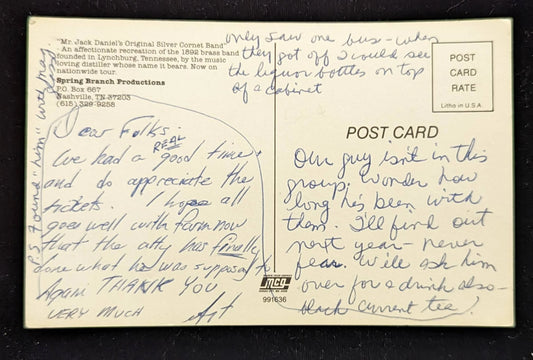 "Mr. Jack Daniel's Original Silver Cornet Band"
An affectionate recreation of the 1892 brass band
founded in Lynchburg, Tennessee, by the music
loving distiller whose name it bears. Now on
nationwide tour.
Spring Branch Productions
P.O. Box 667
Nashville, TN 37203
(615) 329-9258
Dear Folks -
We had a REAL good time
and do appreciate the
tickets. I hope all
goes well with farm now
that the atty has finally
done what he was supposed to
Again THANK YOU
VERY MUCH Art
P.S. Found "him" with mag
only saw one bus - when
they got off I could see
the liquor bottles on top
of a cabinet
POST
CARD
RATE
Litho in U.S.A.
POST CARD
Our guy isn't in this
group. Wonder how
long he's been with
them. I'll find out
next year - never
fear. We'll ask him
over for a drink also -
black current tea.
MCG
991636